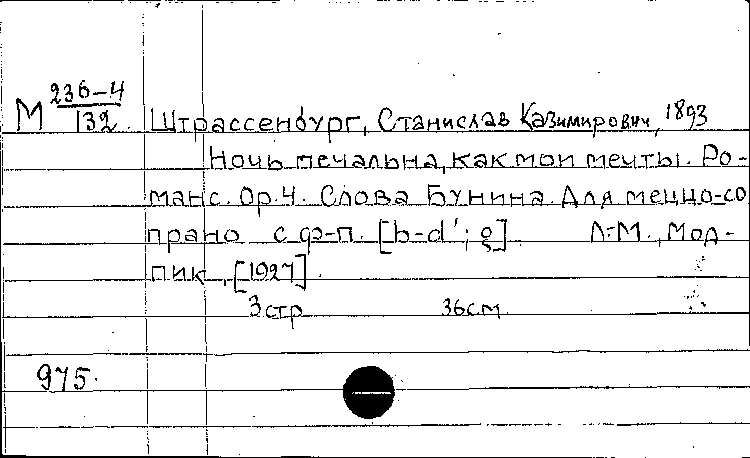 М 236-4/132 Штрассенбург, Станислав Казимирович, 1893
Ночь печальна, как мои мечты. Ро-
манс. Ор.4. Слова Бунина. Для меццо-со
прано с ф-п. [b-d'; g] Л-М., Мод-
пик, [1927].
3 стр 36 см.
975.